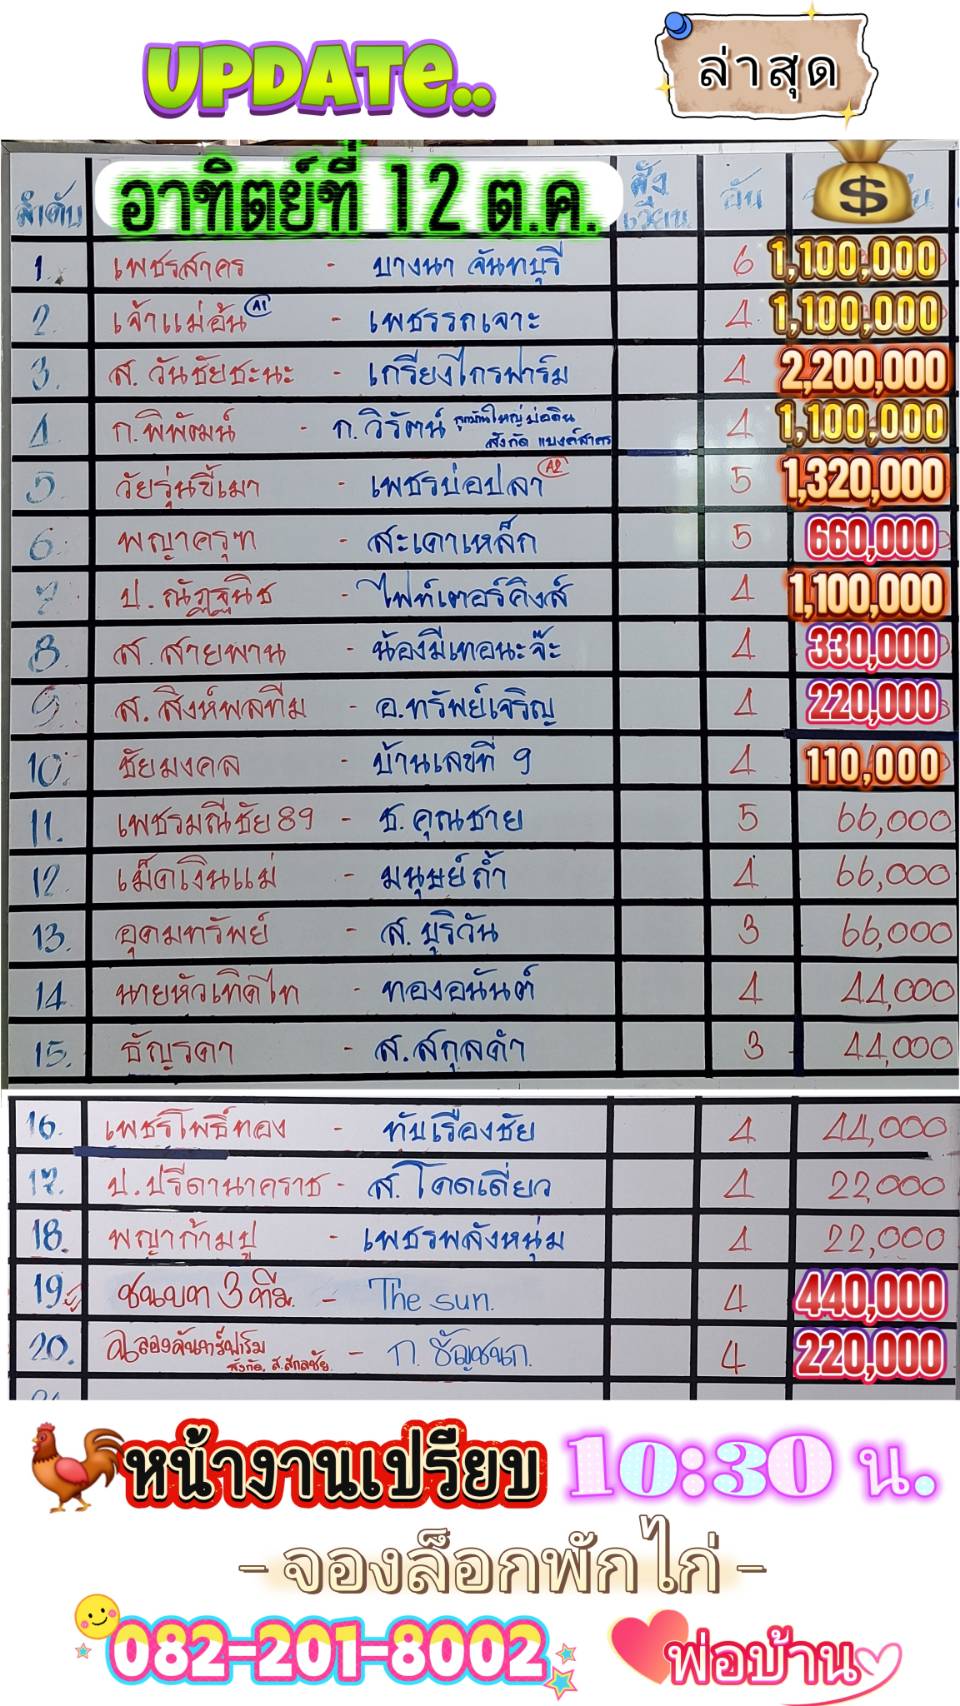 UPDATE..
ล่าสุด
ลำดับ อาทิตย์ที่ 12 ต.ค. สังเวียน อัน
1. เพชรสาคร - บางนา จันทบุรี 6 1,100,000
2. เจ้าแม่อ้น A1 - เพชรรถเจาะ 4 1,100,000
3. ส. วันชัยชะนะ - เกรียงไกรฟาร์ม 4 2,200,000
4 ก.พิพัฒน์ - ก.วิรัตน์ ลูกบ้านใหญ่บ่อดิน สังกัด แบงค์สาคร 4 1,100,000
5 วัยรุ่นขี้เมา - เพชรบ่อปลา A2 5 1,320,000
6. พญาครุฑ - สะเดาเหล็ก 5 660,000
7 ป. ณัฏฐนิช - ไฟท์เตอร์คิงส์ 4 1,100,000
8. ส. สายพาน - น้องมีเทอนะจ๊ะ 4 330,000
9. ส. สิงห์พลทีม - อ.ทรัพย์เจริญ 4 220,000
10. ชัยมงคล - บ้านเลขที่ 9 4 110,000
11. เพชรมณีชัย 89 - ธ. คุณชาย 5 66,000
12. เม็ดเงินแม่ - มนุษย์ถ้ำ 4 66,000
13. อุดมทรัพย์ - ส. บุริวัน 3 66,000
14. นายหัวเทิดไท - ทองอนันต์ 4 44,000
15. ธัญรดา - ส.สกุลดำ 3 44,000
16. เพชรโพธิ์ทอง - ทับเรืองชัย 4 44,000
17. ป.ปรีดานาคราช - ส.โดดเดี่ยว 4 22,000
18. พญาก้ามปู - เพชรพลังหนุ่ม 4 22,000
19. ชนบท 3 ทีม - The sun. 4 440,000
20. ฉลองจันทร์ฟาร์ม สังกัด ส.สกลชัย - ก. ธัญชนก. 4 220,000
หน้างานเปรียบ 10:30 น.
- จองล็อกพักไก่ -
082-201-8002 พ่อบ้าน